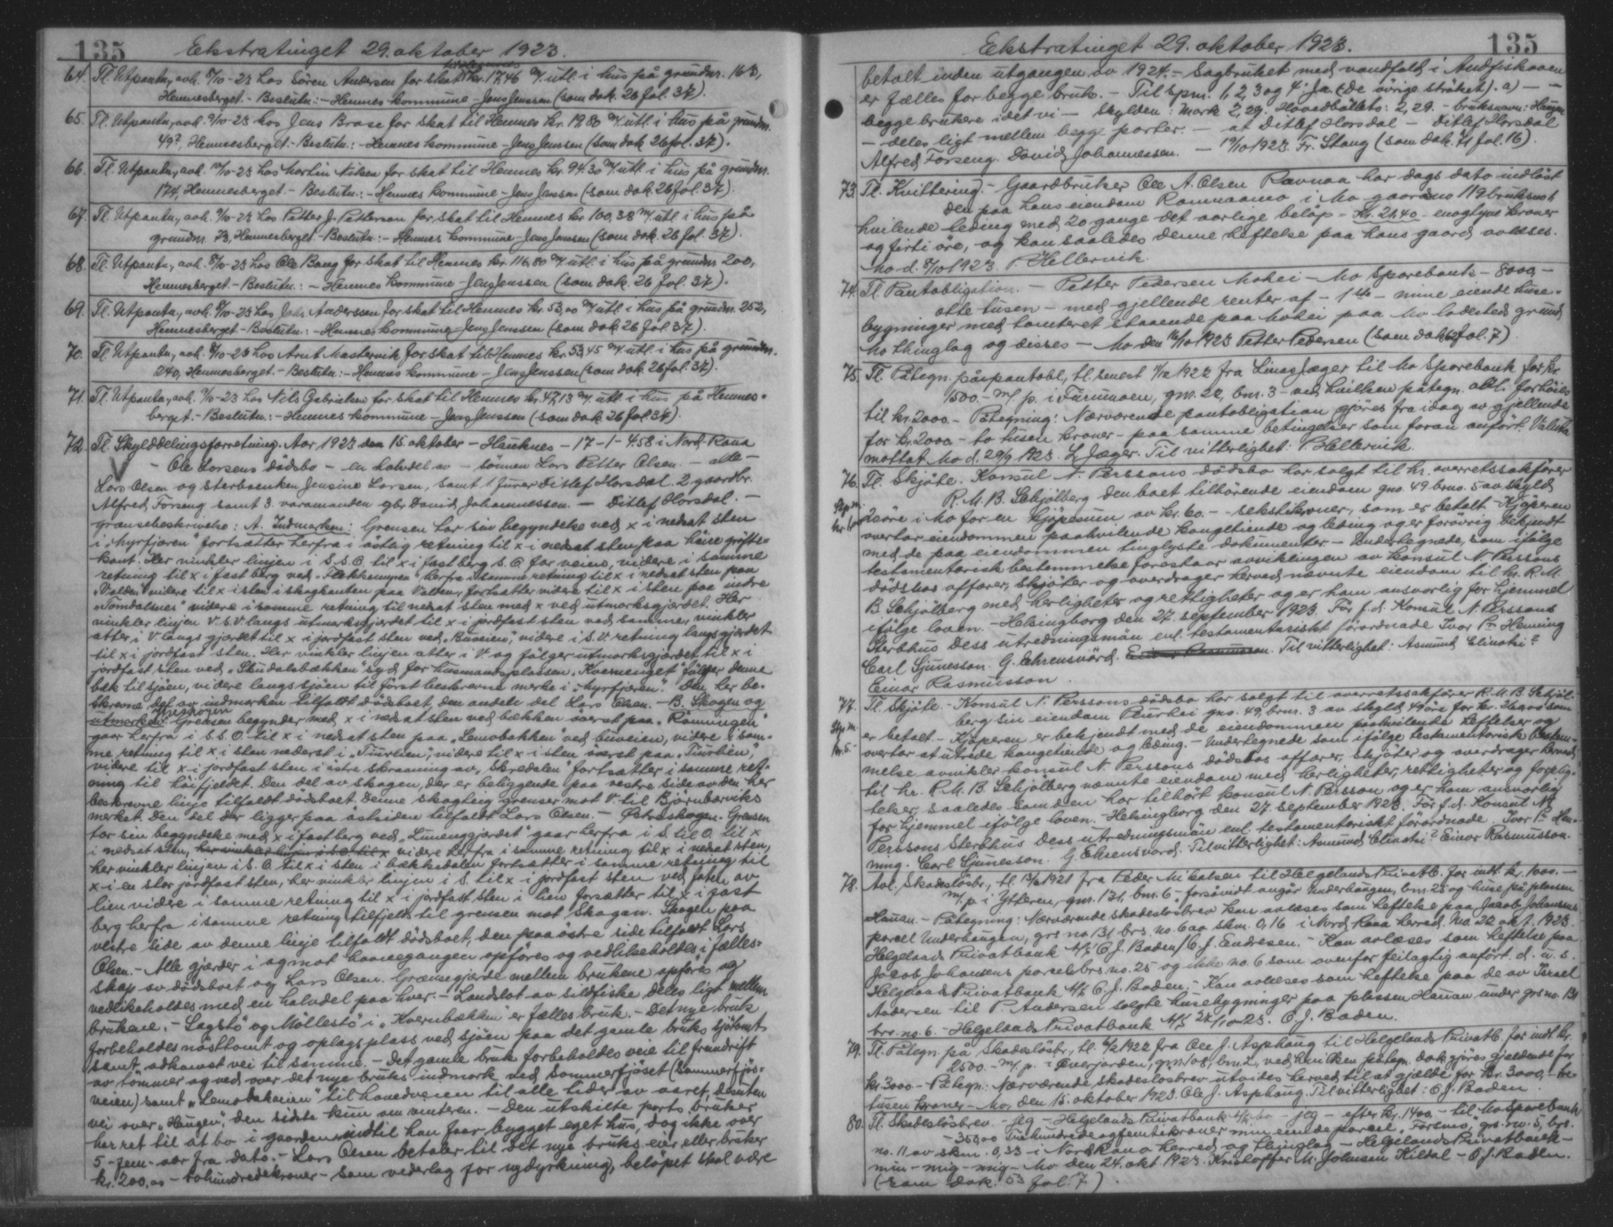 135 Ekstratinget 29. oktober 1923.
64. Tl. Utpantn., avh. 9/10-23 hos Sören Andersen for skat kr. 17,46 m/ utl. i hus på grundnr. 163,
Hennesberget - Beslutn.: - Hemnes kommune - Jens Jenssen (som dok. 26 fol. 37).
65. Tl. Utpantn., avh. 9/10-23 hos Jens Brase for skat til Hemnes kr. 19,80 m/ utl. i hus på grundnr.
49?, Hennesberget. - Beslutn.: - Hemnes kommune - Jens Jenssen (som dok. 26 fol. 37).
66. Tl. Utpantn., avh. 10-23 hos Martin Nilsen for skat til Hemnes kr. 94,30 m/ utl. i hus på grundnr.
174, Hennesberget - Beslutn.: - Hemnes kommune - Jens Jenssen (som dok. 26 fol. 37).
67. Tl. Utpantn., avh. 9/10-23 hos Petter J. Pettersen for skat til Hemnes kr. 100,38 m/ utl. i hus på
grundnr. 73, Hennesberget - Beslutn.: - Hemnes kommune - Jens Jenssen (som dok. 26 fol. 37).
68. Tl. Utpantn., avh. 9/10-23 hos Ole Bang for skat til Hemnes kr. 116,80 m/ utl. i hus på grundnr. 200,
Hennesberget - Beslutn.: - Hemnes kommune - Jens Jenssen (som dok. 26 fol. 37).
69. Tl. Utpantn., avh. 9/10-23 hos Andersson for skat til Hemnes kr. 53,00 m/ utl. i hus på grundnr. 252,
Hennesberget - Beslutn.: - Hemnes kommune - Jens Jenssen (som dok. 26 fol. 37).
70. Tl. Utpantn., avh. 9/10-23 hos Arnt Mastervik for skat til Hemnes kr. 53,45 m/ utl. i hus på grundnr.
240, Hennesberget. - Beslutn.: - Hemnes kommune - Jens Jenssen (som dok. 26 fol. 37).
71. Tl. Utpantn., avh. 9/10-23 hos Nils Gabrielsen for skat til Hemnes kr. 47,13 m/ utl. i hus på Hennes-
berget. - Beslutn.: - Hemnes kommune - Jens Jenssen (som dok. 26 fol. 37).
72. Tl. Skylddelingsforretning. Aar 1923 den 15 oktober - Hauknes - 17 - 1 - 458 i Nord-Rana
- Ole Larsens dödsbo - en halvdel av - sönnen Lars Petter Olsen. - alle -
Lars Olsen og sterboenken Jensine Larsen, samt 1 Juror Ditlef Horsdal 2 gaardbr.
Alfred Forseng samt 3. varamanden gbr. David Johannessen. - Ditlef Horsdal. -
Grænsebeskrivelse: A. Indmarken: Grensen har sin begyndelse ved x i nedsat sten
i "Myrfjæren" fortsætter herfra i östlig retning til x i nedsat sten paa höire gröfte-
kant. Her vinkler linjen i S.S.O. til x i fast berg S.O. for veien, videre i samme
retning til x i fast berg ved herfra samme retning til x i nedsat sten paa
"Valden" videre til x i sten i skogkanten paa Valden, fortsætter videre til x i sten paa indre
"Tomdalsnes" videre i samme retning til nedsat sten med x ved utmarksgjerdet. Her
vinkler linjen V.S.V. langs utmarksgjerdet til x i jordfast sten ved samme, vinkler
atter i V. langs gjerdet til x i jordfast sten ved "Buveien", videre i S.V. retning langs gjerdet
til x i jordfast sten. Her vinkler linjen atter i V. og følger utmarksgjerdet til x i
jordfast sten ved "Skudalsbækken" syd for husmandsplassen, Kvernenget" følger denne
bæk til sjöen, videre langs sjöen til först beskrevne merke i "Myrfjæren." Den her be-
skrevne del av indmarken tilfaldt dödsboet, den anden del Lars Olsen. - B. Skogen og
utmarken. Grensen begynder med x i nedsat sten ved bækken överst paa "Rönningen"
gaar herfra i S.S.O. til x i nedsat sten paa "Lemobakken ved buveien, videre i sam-
me retning til x i sten nederst i "Tuvlien", videre til x i sten överst paa "Tuvlien",
videre til x i jordfast sten i östre skraaning av "Skredalen" fortsætter i samme ret-
ning til höifjeldt. Den del av skogen, der er beliggende paa vestre side av den her
beskrevne linje tilfaldt dödsboet. Denne skogteig grenser mot V. til Björnbærviks
merket. Den del der ligger paa östsiden tilfaldt Lars Olsen. - Östreskogen. Grensen
tar sin begyndelse med x i fast berg ved "Linengjerdet" gaar herfra i S. til O. til x
i nedsat sten, videre herfra i samme retning til x i nedsat sten,
her vinkler linjen i S.O. til x i sten i bækkedalen fortsætter i samme retning til
x i en stor jordfast sten, her vinkler linjen i S. til x i jordfast sten ved foten av
lien videre i samme retning til x i jordfast sten i lien forsætter til x i fast
berg herfra i samme retning tilfjelds til grensen mot Skogan. Skogen paa
vestre side av denne linje tilfaldt dödsboet, den paa östre side tilfaldt Lars
Olsen. - Alle gjærder i og mot havnegangen opföres og vedlikeholdes i fælles-
skap av dödsboet og Lars Olsen. Grænsegjerde mellem brukene opföres og
vedlikeholdes med en halvdel paa hver. - Landslot av sildfiske deles ligt mellem
brukene. - Sagstö og Möllestö i "Kvernbækken" er fælles bruk. - Det nye bruk
forbeholdes nösttomt og oplagsplass ved sjöen paa det gamle bruks sjötomt
samt adkomst vei til samme. - Det gamle bruk forbeholdes veie til fremdrift
av tömmer og ved over det nye bruks indmark ved Sommerfjöset (Sommerfjös-
veien) samt "Lemobakveien" til hovedveien til alle tider av aaret, desuten
vei over "Haugen", den sidste kun om vinteren. - Den utskilte parts bruker
har ret til at bo i gaarden indtil han faar bygget eget hus, dog ikke over
5 - fem - aar fra dato. - Lars Olsen betaler til det nye bruks eier eller bruker
kr. 200,00 - tohundredekroner - som vederlag for nydyrkning, belöpet skal være
Ekstratinget 29. oktober 1923. 135
betalt inden utgangen av 1924. - Sagbruket med vandfald i Andfiskaaen
er fælles for begge bruk. - Til spm. 1, 2, 3 og 4: ja. (de övrige ströket). a) - -
begge brukere idet vi - Skylden: Mark 2,29. Hovedbölets: 2,29. - bruksnavn: Haugen
- deles ligt mellem begge parter. - at Ditlef Horsdal - Ditlef Horsdal
Alfred Forseng. David Johannessen. - 17/10 1923. Fr. Stang (som dok. 41 fol. 16).
73. Tl. Kvittering - Gaardbruker Ole A. Olsen Ravnaa har dags dato indløst
den paa hans eiendom Ravnaamo i Mo gaardsno 119 bruksno 1
hvilende leding med 20 gange det aarlige belöp - kr. 21.40 - enogtyve kroner
og förti öre, og kan saaledes denne heftelse paa hans gaard avlæses.
Mo d. 9/10 1923. P. Hellervik
74. Tl. Pantobligation. - Petter Pedersen Mohei - Mo Sparebank - 8000, -
otte tusen - med gjellende renter af - 1ste - mine eiende huse-
bygninger med tomteret staaende paa Mohei paa Mo ladesteds grund
Mo thinglag og disses - Mo den 10/10 1923 Petter Pedersen (som dok. fol. 7)
75. Tl. Pategn. på pantobl., tl. senest 1922 fra Linas Jæger til Mo Sparebank for kr.
1500.- m/ p. i Furumoen, gnr. 22, bnr. 3 - ved hvilken pategn. obl. forhöies
til kr. 2000 - Påtegning: Nærværende pantobligation gjöres fra idag av gjellende
for kr. 2000 - to tusen kroner - paa samme betingelser som foran anfört. Valuta
mottat. Mo d. 29/9 1923. L. Jæger. Til vitterlighet: P. Hellervik.
76. Tl. Skjöte. Konsul N. Perssons dödsbo har solgt til hr. overretssakförer
R. M. B. Schjölberg den boet tilhörende eiendom gno. 49 brno. 5 av skyld
2 öre i Mo for en kjöpesum av kr. 60.- - seksti kroner, som er betalt. Kjöperen
overtar eiendommen paahvilende kongetiende og leding og er forövrig bekjendt
med de paa eiendommen tinglyste dokumenter - Undertegnede, som ifölge
testamentarisk bestemmelse forestaar avviklingen av konsul N. Perssons
dödsbos affærer, skjöter og overdrager herved nævnte eiendom til hr. R. M.
B. Schjölberg med herligheter og rettigheter og er ham ansvarlig for hjemmel
ifölge loven. - Helsingborg den 27. september 1923. För f.d. Konsul N. Perssons
Sterbhus Dess utredningsmän enl. testamentariskt förordnade Ivor Henning
Carl Sjunesson. G. Ehrensvärd. Til vitterlighet: Asmund Elinotri?
Einar Rasmusson.
77. Tl. Skjöte - Konsul N. Perssons dödsbo har solgt til overretssakförer R. M. B. Schjöl-
berg sin eiendom Peurhei gno. 49, brno. 3 av skyld 49 öre for kr. som
er betalt - Kjöperen er bekjendt med de eiendommen paahvilende heftelser og
overtar at utrede kongetiende og leding. - Undertegnede som ifölge testamentarisk bestem-
melse avvikler konsul N. Perssons dödsbos affærer, skjöter og overdrager herved
til hr. R. M. B. Schjölberg nævnte eiendom med herligheter, rettigheter og forplig-
telser, saaledes som den har tilhört konsul N. Persson og er ham ansvarlig
for hjemmel ifölge loven. - Helsingborg den 27. september 1923. För f.d. Konsul N.
Perssons Sterbhus Dess utredningsmän enl. testamentariskt förordnade. Ivor Hen-
ning. Carl Sjunesson. G. Ehrensvärd. Til vitterlighet: Asmund Elinotri? Einar Rasmusson.
78. Avl. Skadeslösbr., tl. 13/6 1921 fra Peder Mikalsen til Helgelands Privatb. for indt. kr. 1000. -
m/ p. i Ytteren, gnr. 131, bnr. 6 - forsåvidt angår Underhaugen, bnr. 25 og huse på plassen
Hauan. - Påtegning: Nærværende skadeslösbrev kan avlæses som heftelse paa Jacob Johansens
parcel Underhaugen, grs no 131 brs. no. 6 av skm. 0,16 i Nord Rana herred. Mo 22 okt. 1923.
Helgelands Privatbank A/S O. J. Baden / C. J. Endresen. - Kan avlæses som heftelse paa
Jacob Johansens parcel brs. no. 25 og ikke no. 6 som ovenfor feilagtig anfört. d. u. s.
Helgelands Privatbank A/S O. J. Baden. - Kan avlæses som heftelse paa de av Israel
Andersen til P. Andersen solgte husebygninger paa plassen Hauan under grs no. 131
brs. no. 6. - Helgelands Privatbank A/S 24/10-23. O. J. Baden.
79. Tl. Pategn. på Skadeslösbr., tl. 1922 fra Ole J. Asphaug til Helgelands Privatb. for indt. kr.
2500.- m/ p. i Överjorden, gnr. 108, bnr. 2, ved hvilken pategn. dok. gjöres gjeldende for
kr. 3000 - Pategn.: Nærværende skadeslösbrev utvides herved til at gjælde for kr. 3000, - tre-
tusen kroner - Mo, den 15. oktober 1923. Ole J. Asphaug. Til vitterlighet: O. J. Baden.
80. Tl. Skadeslösbrev. - jeg - Helgelands Privatbank A/S - jeg - efter kr. 1400. - til Mo Sparebank
- 350,00 Trehundredeogfemtikroner min eiende parcel "Forsmo", grs. no. 5, brs.
no. 11 av skm. 0,33 i Nord Rana herred og thinglag - Helgelands Privatbank -
min - mig - mig - Mo den 24. okt 1923. Kristoffer M. Johnsen Kildal - O. J. Baden.
(som dok. 53 fol. 7).